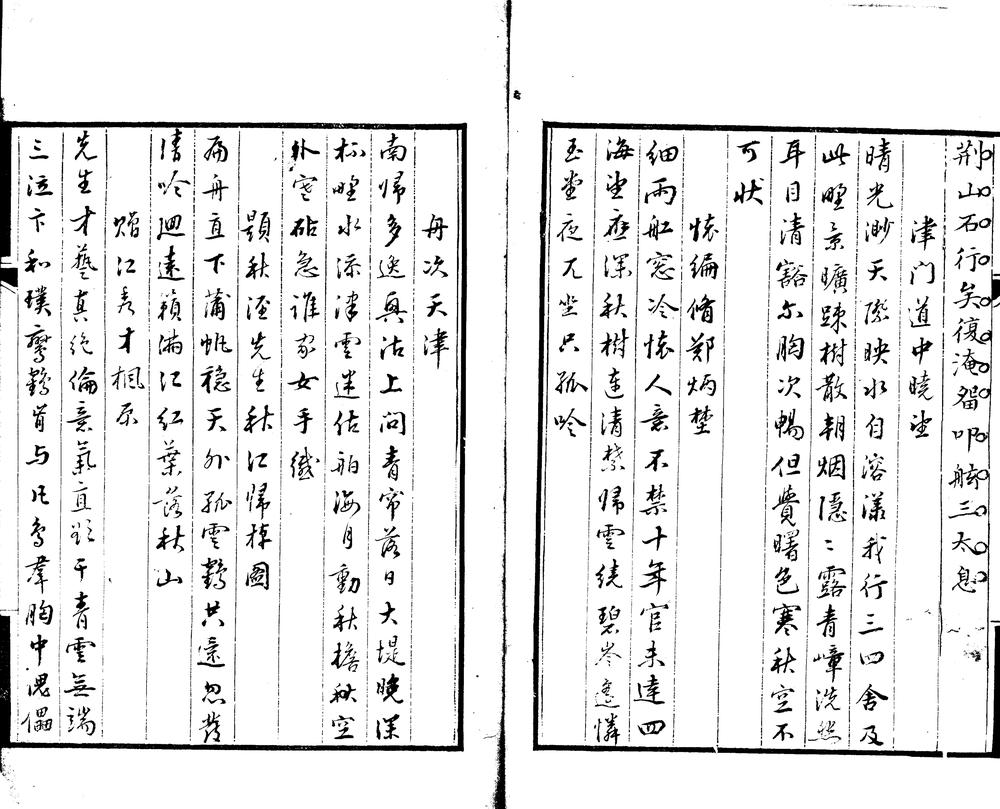 荆山石行矣復淹留叩舷三太息
津门道中曉望
晴光渺天際映水自溶漾我行三四舍及
此野景曠疎樹散朝烟隱〻露青嶂洗然
耳目清豁尔胸次暢但覺曙色寒秋空不
可状
懐編脩鄭炳埜
細雨舡窓冷懐人意不禁十年官未達四
海望應深秋樹連清禁歸雲繞碧岑遙憐
玉堂夜兀坐只孤吟
舟次天津
南歸多逸興沽上问青帘落日大堤晚深
秋野水添津雲迷估舶海月動秋檐秋空
外寒砧急誰家女手纖
題秋渥先生秋江歸棹圖
扁舟直下蒲帆穏天外孤雲鶴共還忽發
清吟迴遠籟滿江红葉落秋山
贈江秀才楓原
先生才藝真絶倫意氣直欲干青雲無端
三泣卞和璞鸞鶴肯与凡鳥羣胸中傀儡